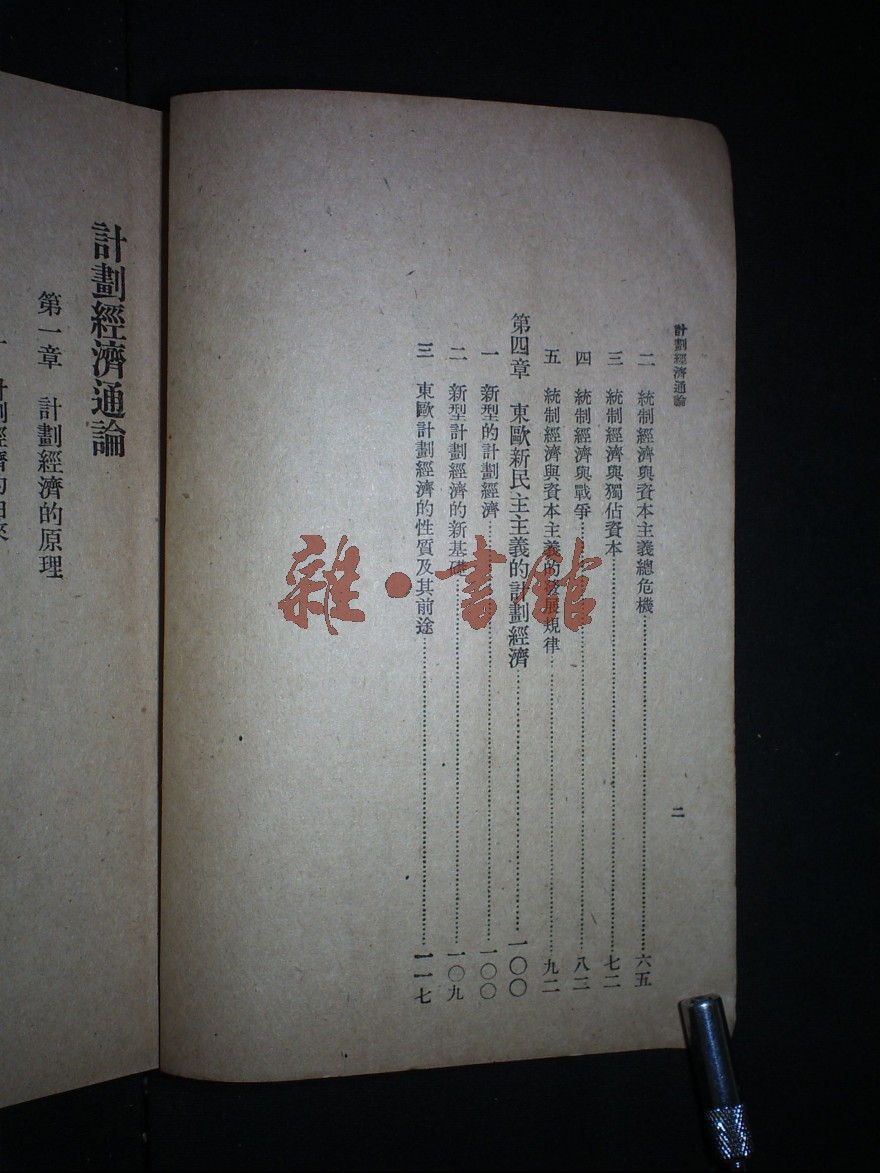 計劃經濟通論
二
二　統制經濟與資本主義總危機……六五
三　統制經濟與獨佔資本……七二
四　統制經濟與戰爭……八二
五　統制經濟與資本主義的發展規律……九二
第四章　東歐新民主主義的計劃經濟……一〇〇
一　新型的計劃經濟……一〇〇
二　新型計劃經濟的新基礎……一〇九
三　東歐計劃經濟的性質及其前途……一一七
雜·書館
計劃經濟通論
第一章　計劃經濟的原理
一　計劃經濟的由來